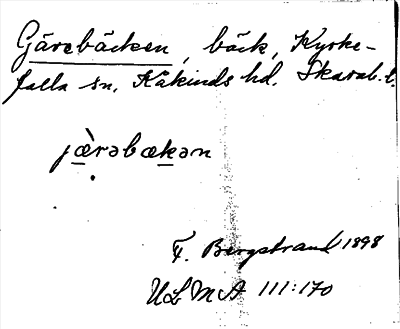 Gärebäcken, bäck, Kyrke-
falla sn, Kåkinds hd. Skarab. l.
jæ̀rəbækən
F. Bergstrand 1898
ULMA 111:170